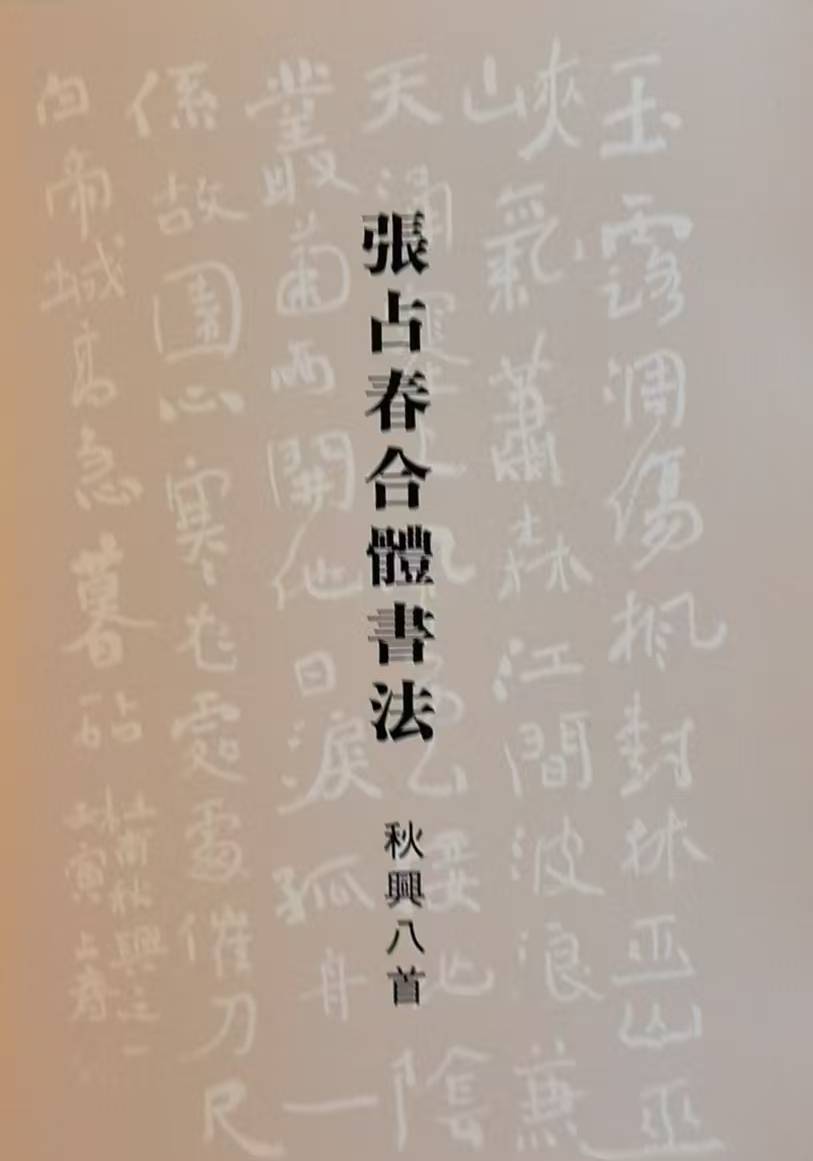 張占春合體書法
秋興八首
玉露凋傷楓對林巫山巫
峽氣蕭森江間波浪兼
天涌塞上風雲接地陰
叢菊兩開他日淚孤舟一
係故園心寒衣處處催刀尺
白帝城高急暮砧
杜甫秋興之一
壬寅占春